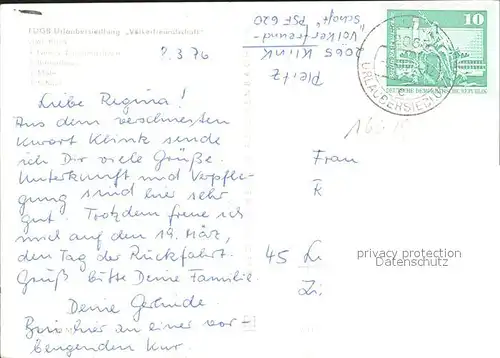 FDGB Urlaubersiedlung „Völkerfreundschaft"
9.3.76
Liebe Regina!
Aus dem verschneiten
Kurort Klink sende
ich Dir viele Grüße.
Unterkunft und Verpfle-
gung sind hier sehr
gut. Trotzdem freue ich
mich auf den 19. März,
den Tag der Rückfahrt.
Grüß bitte Deine Familie.
Deine Gerlinde.
Bin hier an einer vor-
beugenden Kur.
Pleitz
2065 Klink
"Völkerfreund-
schaft" PSF 620
10
DEUTSCHE DEMOKRATISCHE REPUBLIK
URLAUBERSIEDLUNG
c
Frau
R
45 L
Zi
privacy protection
Datenschutz